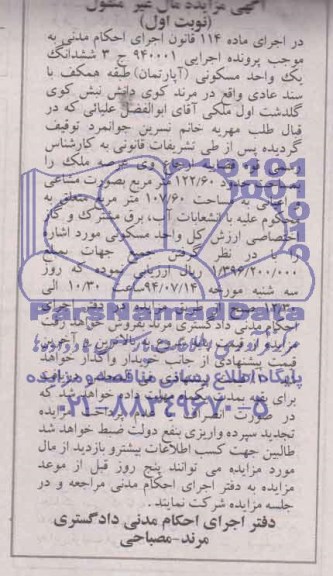 آگهی مزایده مال غیر منقول
(نوبت اول)
در اجرای ماده ۱۱۴ قانون اجرای احکام مدنی به
موجب پرونده اجرایی ۹۴۰۰۰۱ ج ۳ ششدانگ
یک واحد مسکونی (آپارتمان) طبقه همکف با
سند عادی واقع در مرند کوی دانش نبش کوی
گلدشت اول ملکی آقای ابوالفضل علیائی که در
قبال طلب مهریه خانم نسرین جوانمرد توقیف
گردیده پس از طی تشریفات قانونی به کارشناس
رسمی عرصه ملک را
حدود ۱۲۲/۶۰ متر مربع بصورت مشاعی
و اعیانی به مساحت ۱۰۷/۶۰ متر مربع متعلق به
محکوم علیه با انشعابات آب، برق مشترک و گاز
اختصاصی ارزش کل واحد مسکونی مورد اشاره
را با در نظر گرفتن جمیع جهات بمبلغ
۱/۳۹۶/۲۰۰/۰۰۰ ریال ارزیابی نموده که روز
سه شنبه مورخه ۹۴/۰۷/۱۴ ساعت ۱۰/۳۰ الی
صبح از طریق مزایده در دفتر اجرای
احکام مدنی دادگستری مرند بفروش خواهد رفت
مزایده از قیمت پایه شروع به بالاترین و آخرین
قیمت پیشنهادی از جانب خریدار واگذار خواهد
برای بقیه بمدت یکماه مهلت داده خواهد شد که
در صورت
تجدید سپرده واریزی بنفع دولت ضبط خواهد شد
طالبین جهت کسب اطلاعات بیشتر و بازدید از مال
مورد مزایده می توانند پنج روز قبل از موعد
مزایده به دفتر اجرای احکام مدنی مراجعه و در
جلسه مزایده شرکت نمایند.
دفتر اجرای احکام مدنی دادگستری
مرند-مصباحی
ParsNamad Data
پایگاه اطلاع رسانی مناقصه و مزایده
۰۲۱-۸۸۳۴۹۶۷۰-۵